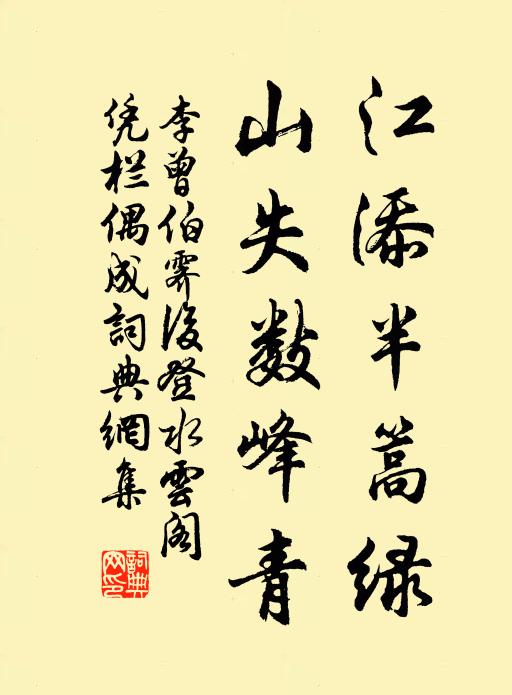 江添半篙绿
山失数峰青
李曾伯霁後登水雲阁
凭栏偶成詞典網集
詞典
网印